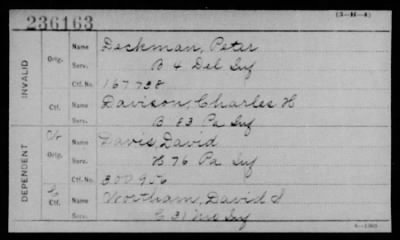 236163
(3-H-4)
INVALID
Orig.
Name Deckman, Peter
Serv. B 4 Del Inf
Ctf. No. 167738
Ctf.
Name Davison, Charles H
Serv. B 83 Pa Inf
DEPENDENT
W
Orig.
Name Davis, David
Serv. H 76 Pa Inf
Ctf. No. 300906
C
Ctf.
Name Wortham, David S
Serv. C 31 Mo Inf